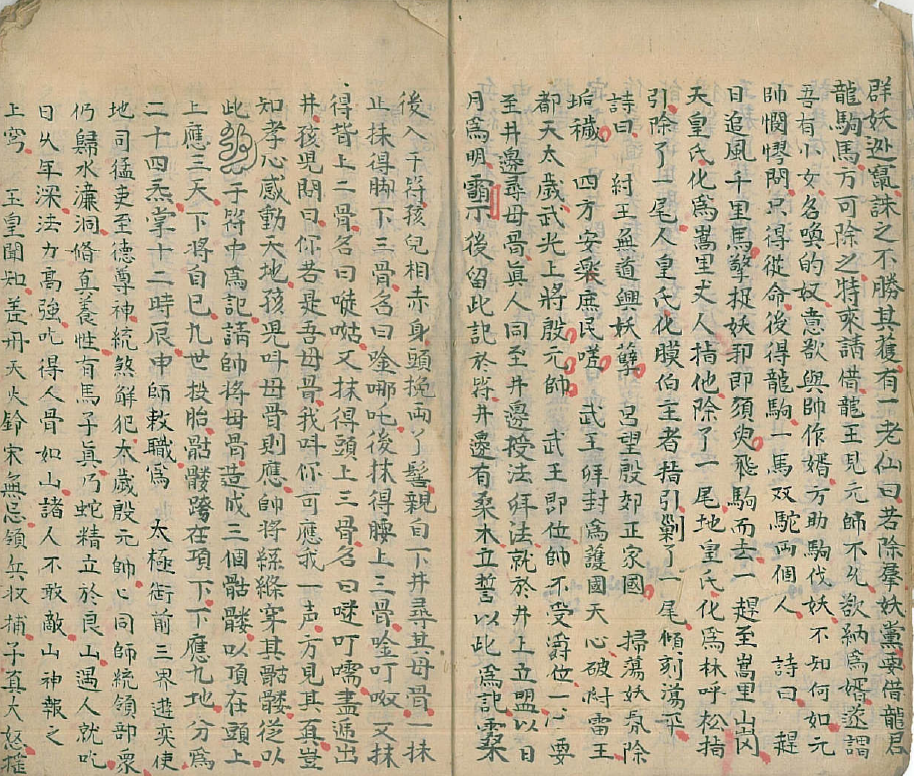 群妖迯竄誅之不勝其獲有一老仙曰若除羣妖黨要借龍君
龍駒馬方可除之特來請借龍王見元師不允欲納為婿遂謂
吾有小女名喚的奴意欲與帥作婿方助駒伐妖不知何如元
帥憫憀問只得從命後得龍駒一馬双駝両個人 詩曰 趕
日追風千里馬擎捉妖邪即須臾飛駒而去一趕至嵩里山岗
天皇氏化為嵩里丈人指他除了一尾地皇氏化為林呼松指
引除了一尾人皇氏化膜伯主者指引剿了一尾傾刻蕩平
詩曰 紂王無道興妖孽 呂望殷郊正家國 掃蕩妖氛除
垢穢 四方安樂庶民嗟 武王拜封為護國天心破尉雷王
都天太歲武光上將殷元帥 武王即位帥不受爵位一心要
至井邊尋母骨真人同至井邊授法拜法就於井上立盟以日
月為明霸下後留此記於符井邊有桑木立誓以此為記霦
後入于符孩兒相赤身頭挽両了髻親自下井尋其母骨一抹
止抹得脚下三骨名曰唫哪吒後抹得腰上三骨唫叮呶又抹
得背上二骨名曰唗咕又抹得頭上三骨名曰㖷叮嚅盡逓出
井孩児問曰你若是吾母骨我呌你可應我一声方見其直豈
知孝心感動天地孩児呌母骨則應帥将絲縧穿其骷髏從以
此 于符中為記請帥将母骨造成三個骷髏以頂在頭上
上應三天下将自己九世投胎骷髏跨在項下下應九地分為
二十四炁掌十二時辰申師敕職為 太極衙前三界遊奕使
地司猛吏至德尊神統煞解犯太歲殷元帥心同師統領部衆
仍歸水濂洞脩真養性有馬子真乃蛇精立於良山遇人就吃
日久年深法力高強吃得人骨如山諸人不敢敵山神報之
上穹 玉皇聞知差丹天火鈴宋無忌領兵收捕子真大怒摧